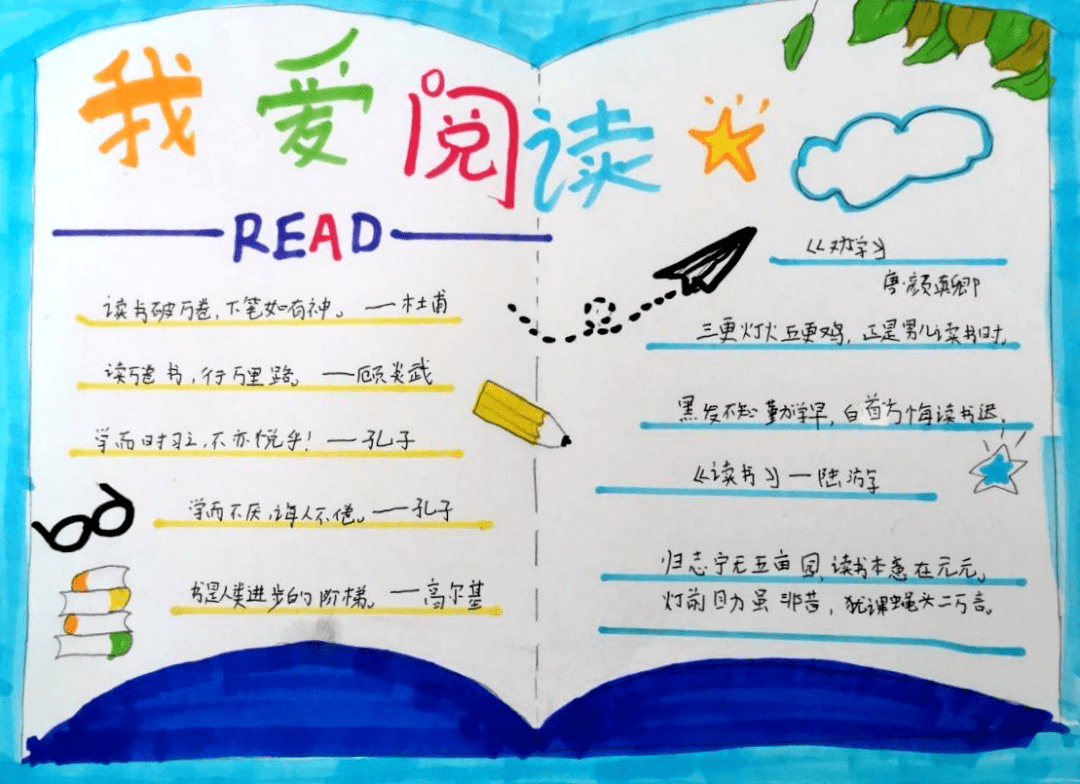 我爱阅读
READ
读书破万卷，下笔如有神。——杜甫
读万卷书，行万里路。——顾炎武
学而时习之，不亦悦乎！——孔子
学而不厌，诲人不倦。——孔子
书是人类进步的阶梯。——高尔基
《劝学》
唐·颜真卿
三更灯火五更鸡，正是男儿读书时，
黑发不知勤学早，白首方悔读书迟。
《读书》——陆游
归志宁无五亩园，读书本意在元元。
灯前目力虽非昔，犹课蝇头二万言。